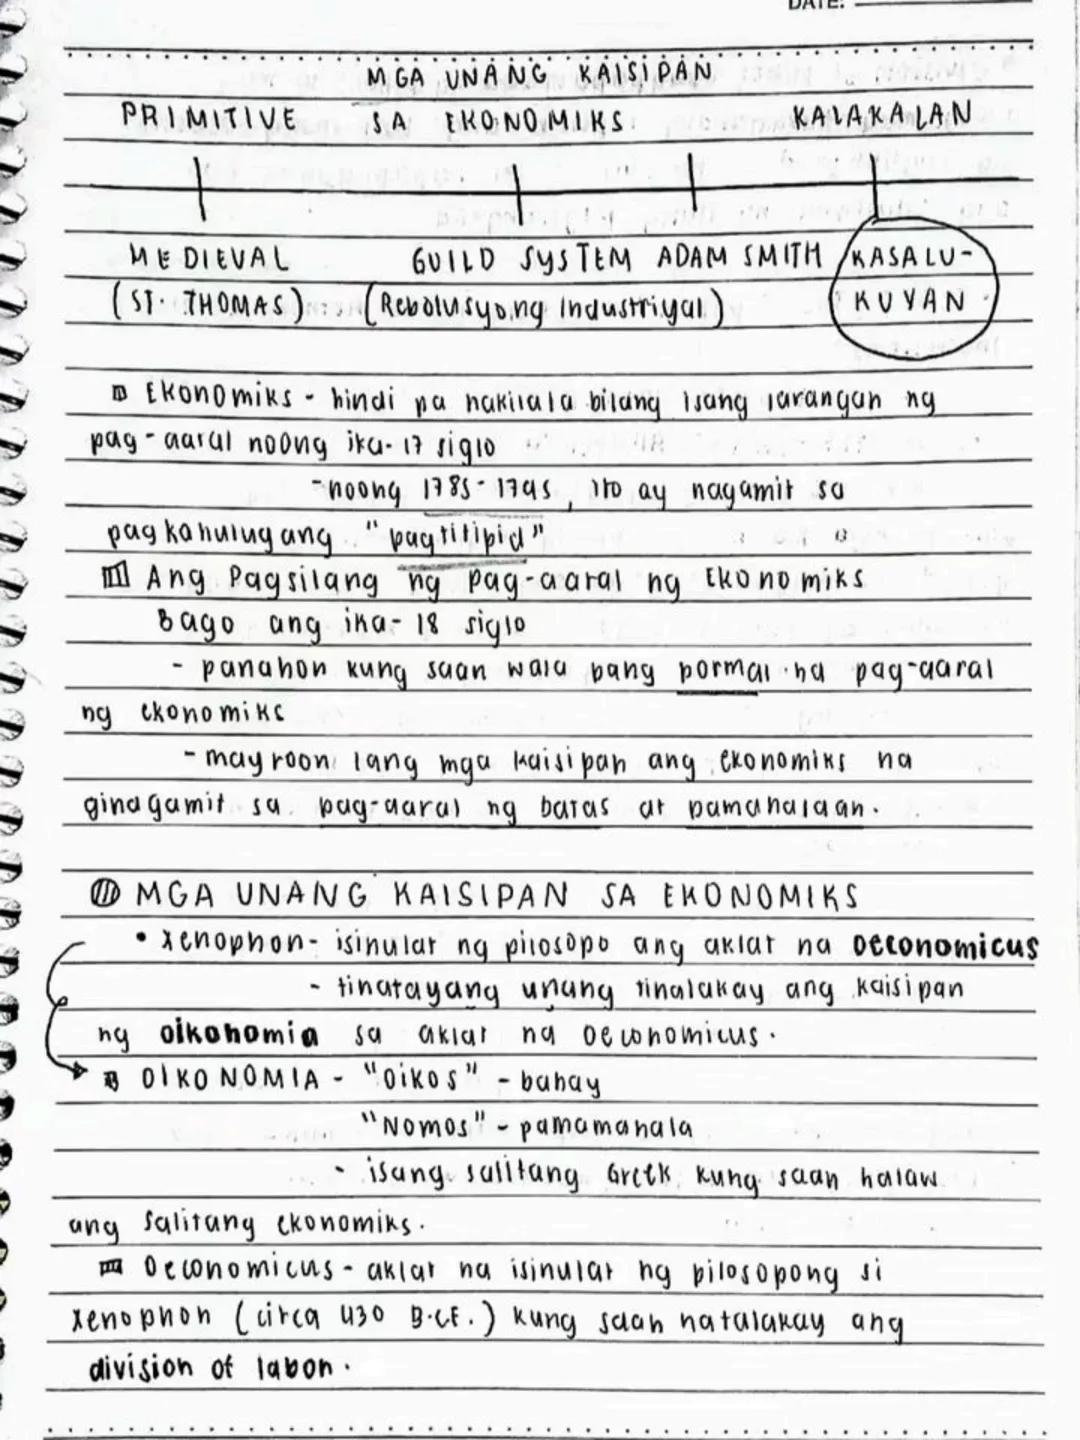 DATE:
MGA UNANG KAISIPAN
PRIMITIVE SA EKONOMIKS KALAKALAN
MEDIEVAL GUILD SYSTEM ADAM SMITH KASALU-
(ST. THOMAS) (Rebolusyong Industriyal) KUYAN
Ekonomiks - hindi pa nakilala bilang isang larangan ng
pag-aaral noong ika-17 siglo
- noong 1785-1795, ito ay nagamit sa
pagkahulugang "pagtitipid"
Ang Pagsilang ng pag-aaral ng Ekonomiks
Bago ang ika-18 siglo
- panahon kung saan wala pang pormal na pag-aaral
ng ekonomiks
- mayroon lang mga kaisipan ang ekonomiks na
ginagamit sa pag-aaral ng batas at pamahalaan.
MGA UNANG KAISIPAN SA EKONOMIKS
• Xenophon - isinulat ng pilosopo ang aklat na Oeconomicus
- tinatayang unang tinalakay ang kaisipan
ng oikonomia sa aklat na Oeconomicus.
OIKONOMIA - "Oikos" - bahay
"Nomos" - pamamahala
- isang salitang Greek kung saan halaw
ang salitang ekonomiks.
Oeconomicus - aklat na isinulat ng pilosopong si
Xenophon (circa 430 B.CE.) kung saan natalakay ang
division of labor.